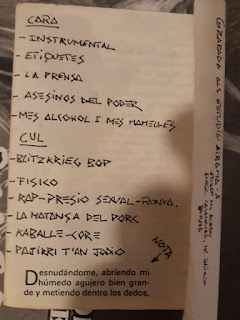 CARA
- INSTRUMENTAL
- ETIQUETES
- LA PRENSA
- ASESINOS DEL PODER
- MES ALCOHOL I MES MAMELLES
CUL
- BLITZKRIEG BOP
- FISICO
- RAP-PRESIO SEXUAL-
- LA MATANÇA DEL PORC
- KABALLE-CORE
- PAJIRRI T'AN JODIO
NOTA
Desnudándome, abriendo mi
húmedo agujero bien gran-
de y metiendo dentro los dedos,
GRABADO ALS ESTUDIS